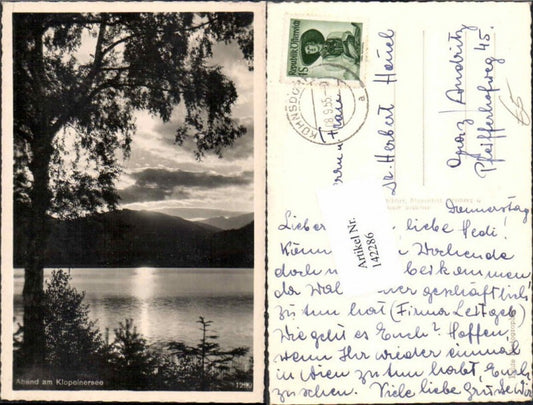 Abend am Klopeinersee
Republik Österreich
KÜHNSDORF
8.9.55
a
Herrn u. Frau
Dr. Herbert Hensel
Graz/Andritz
Pfeifferhofweg 45.
Artikel Nr.
142286
Donnerstag
Lieber liebe Hedi!
Könn Wochenende
doch beikommen,
da Wal er geschäftlich
zu tun hat (Firma Leitgeb)
Wie geht es Euch? Hoffen,
wenn Ihr wieder einmal
in Wien zu tun habt, Euch
zu sehen. Viele liebe Grüße